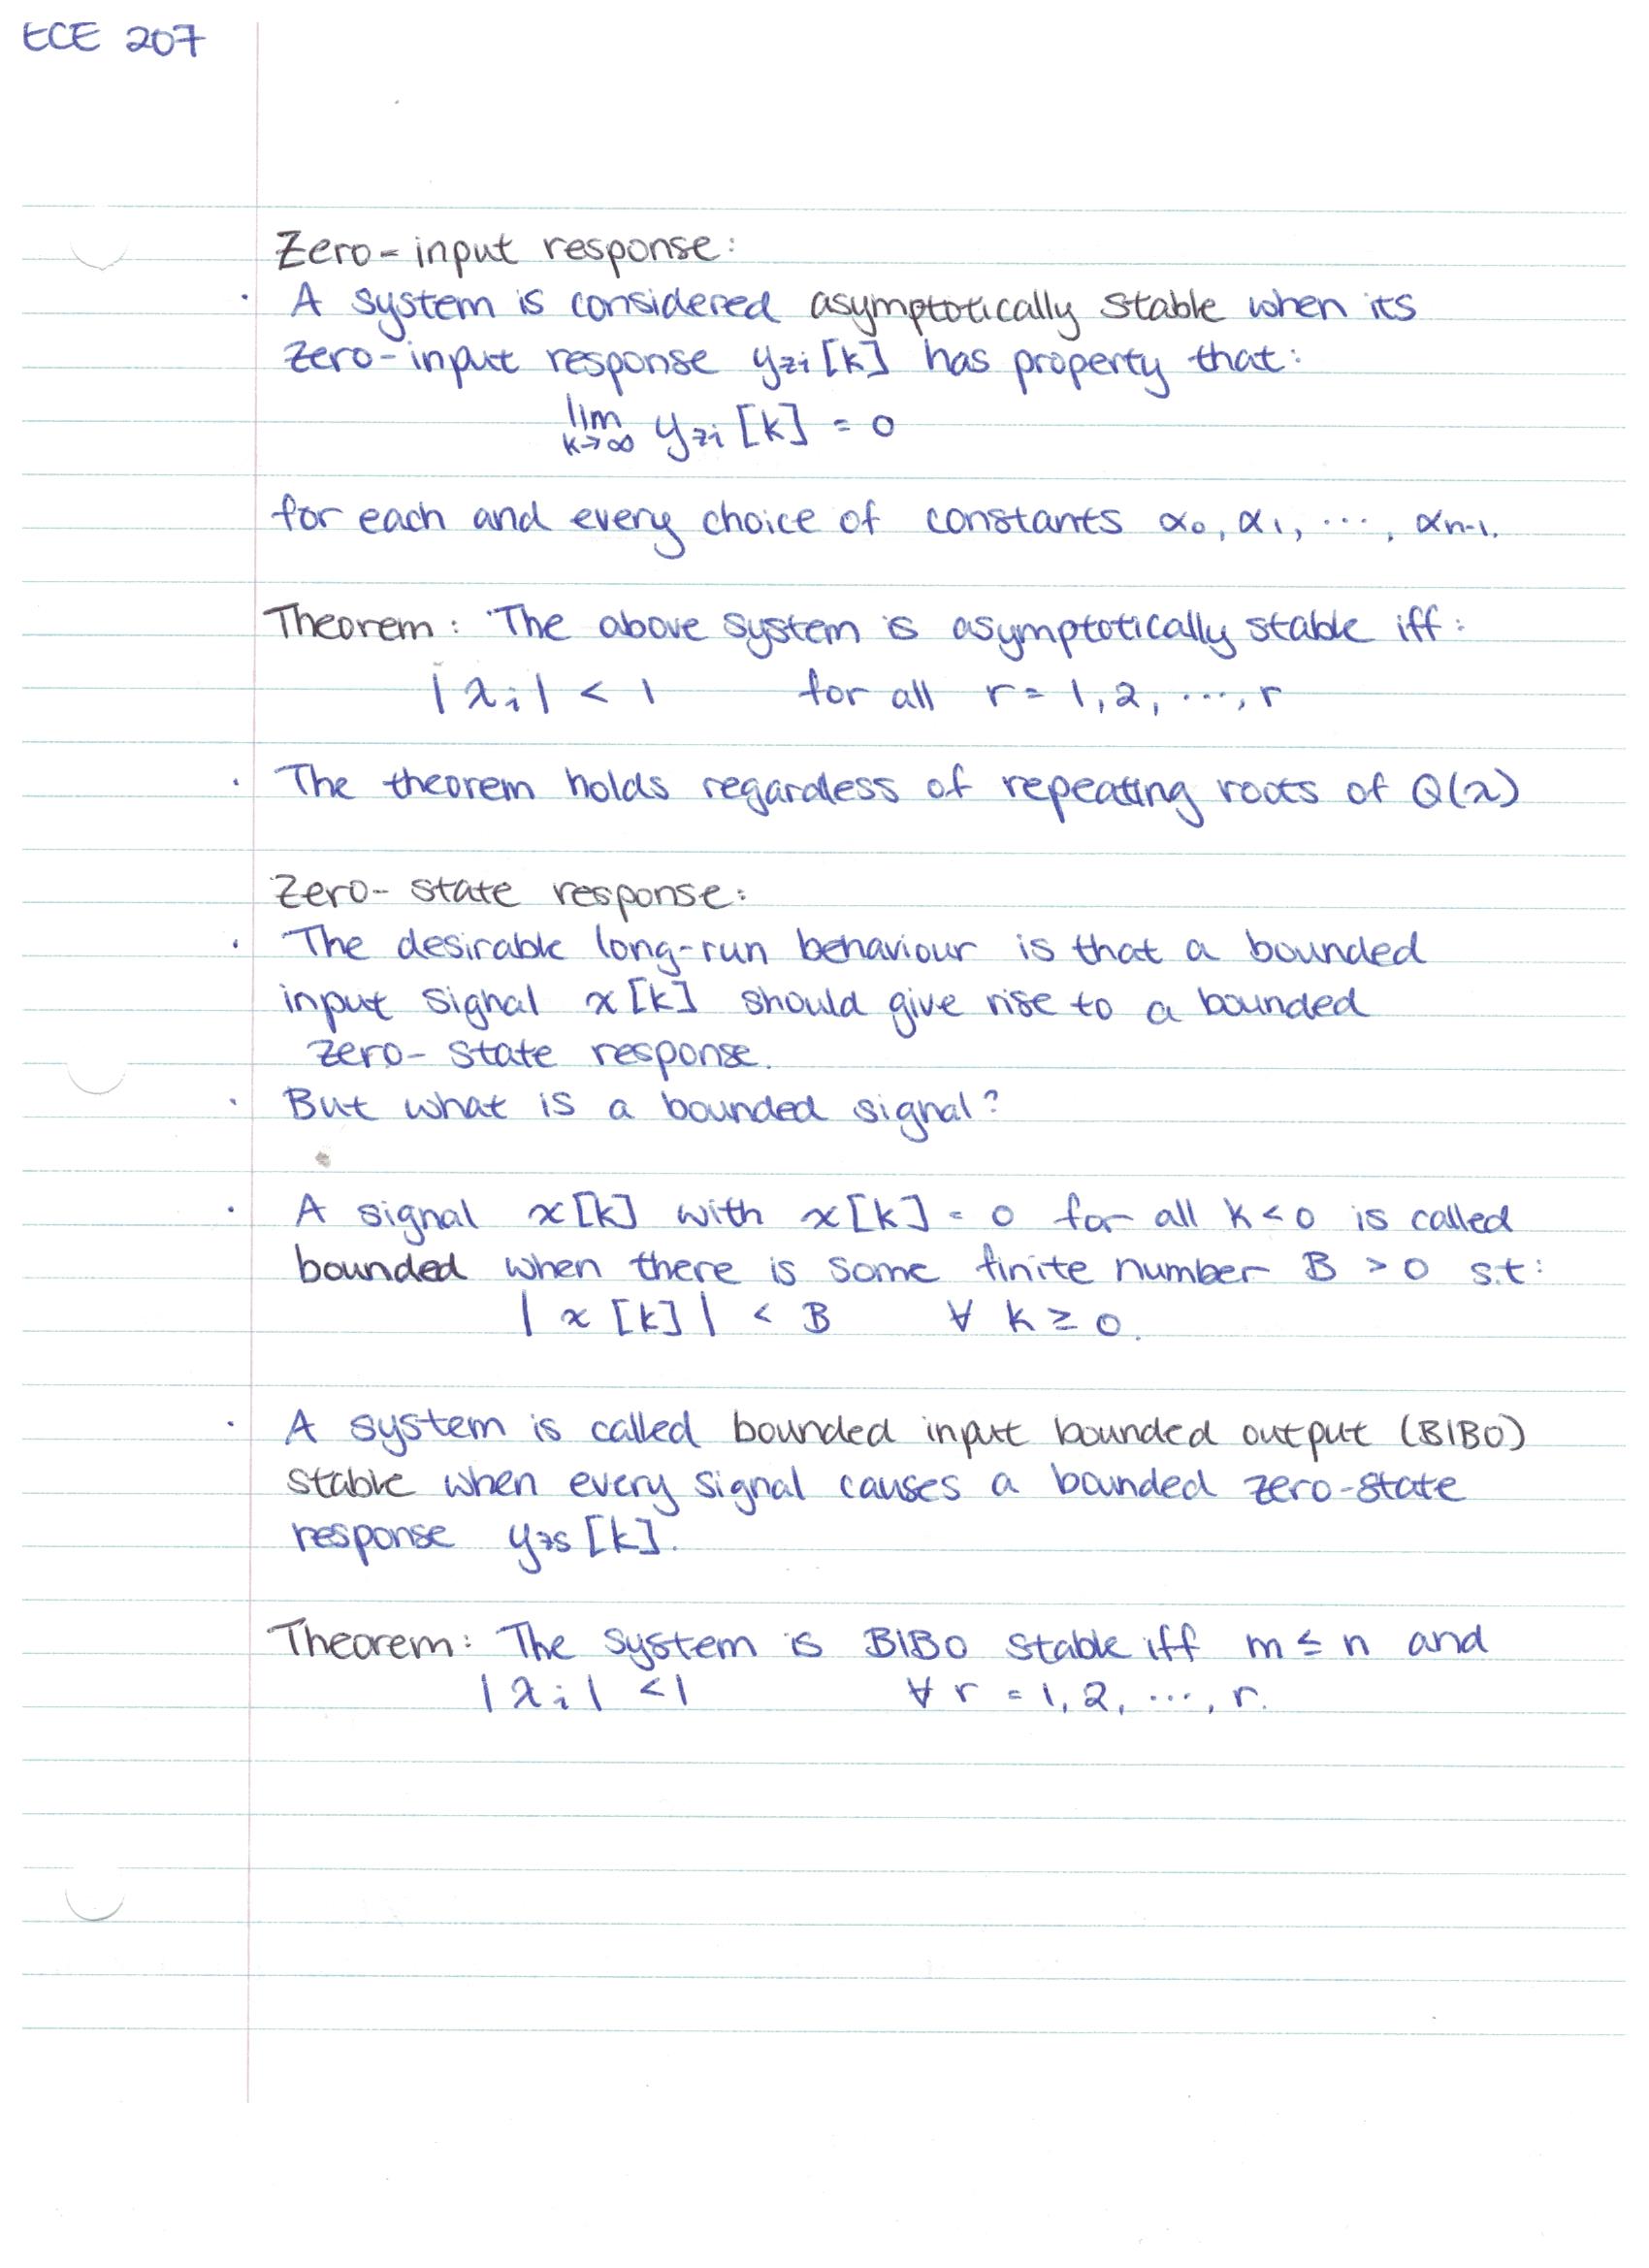 ECE 207
Zero-input response:
· A system is considered asymptotically stable when its
zero-input response yzi[k] has property that:
lim k→∞ yzi[k] = 0
for each and every choice of constants α0, α1, ..., αn-1.
Theorem: The above system is asymptotically stable iff:
|λi| < 1 for all r = 1, 2, ..., r
· The theorem holds regardless of repeating roots of Q(λ)
Zero-state response:
· The desirable long-run behaviour is that a bounded
input signal x[k] should give rise to a bounded
zero-state response.
· But what is a bounded signal?
· A signal x[k] with x[k] = 0 for all k<0 is called
bounded when there is some finite number B > 0 s.t:
|x[k]| < B ∀ k ≥ 0.
· A system is called bounded input bounded output (BIBO)
stable when every signal causes a bounded zero-state
response yzs[k].
Theorem: The system is BIBO stable iff m ≤ n and
|λi| < 1 ∀ r = 1, 2, ..., r.